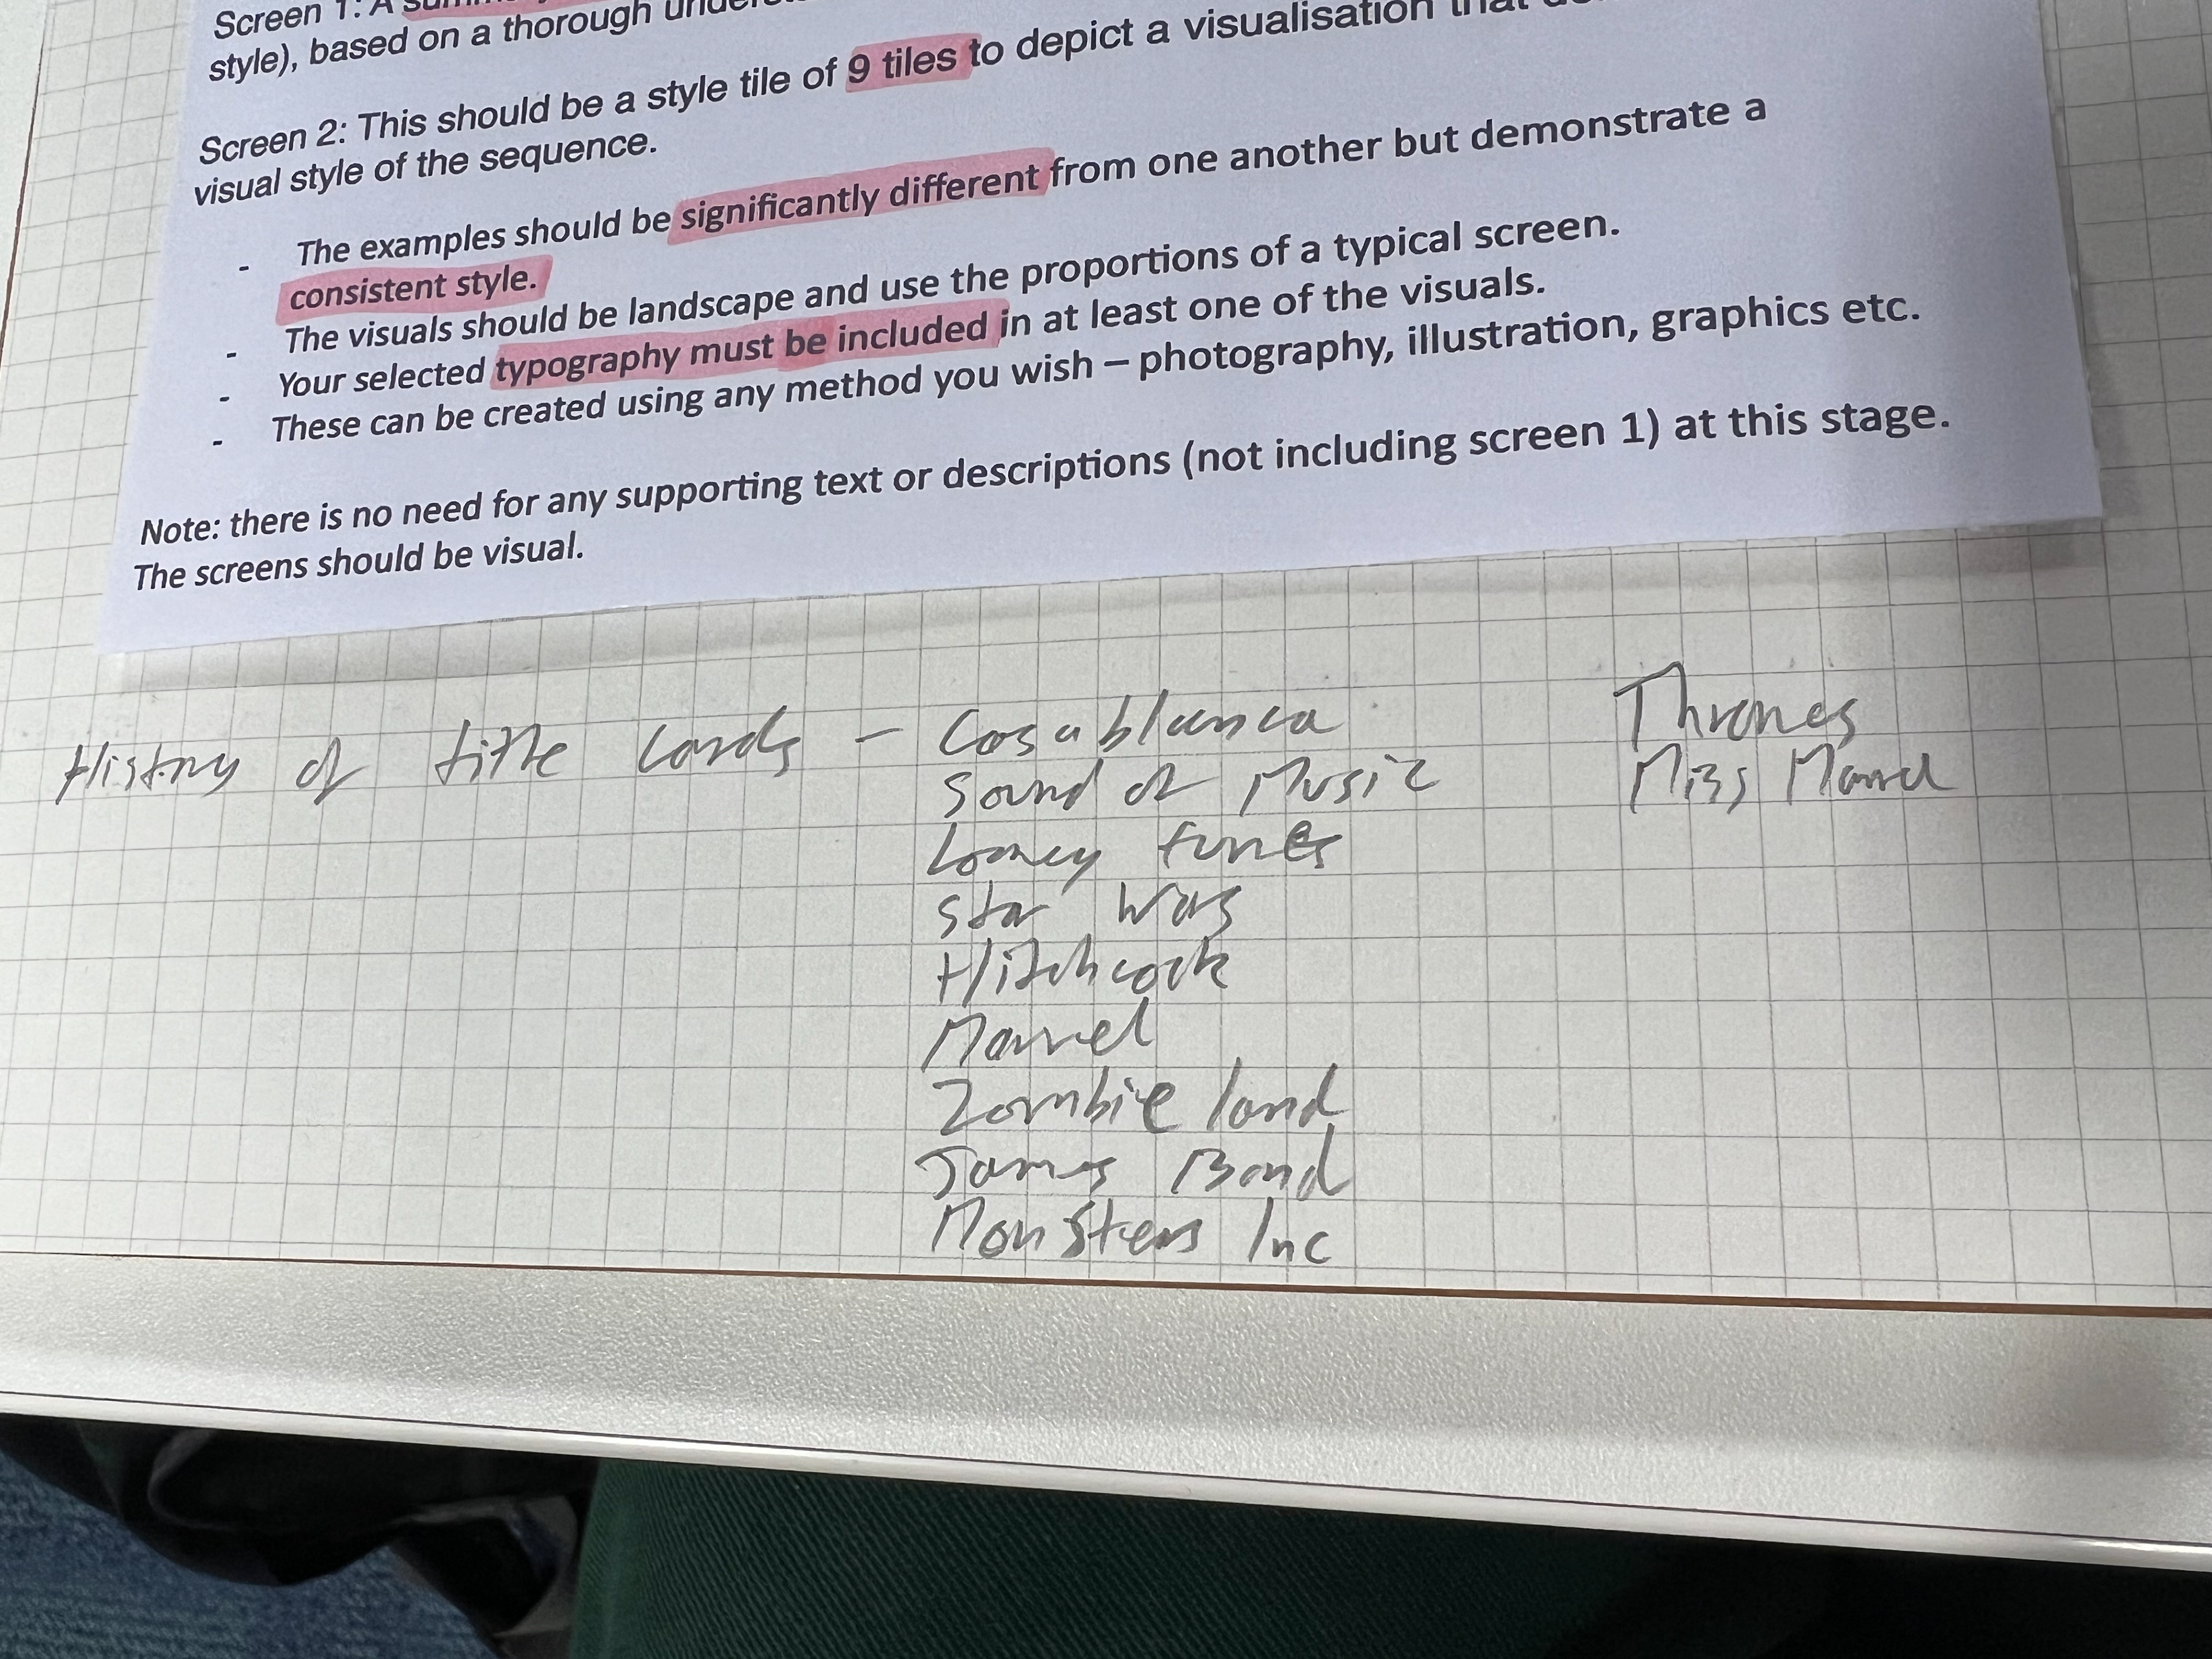 Screen 1: A
style), based on a thorough
Screen 2: This should be a style tile of 9 tiles to depict a visualisation that
visual style of the sequence.
- The examples should be significantly different from one another but demonstrate a
consistent style.
- The visuals should be landscape and use the proportions of a typical screen.
- Your selected typography must be included in at least one of the visuals.
- These can be created using any method you wish – photography, illustration, graphics etc.
Note: there is no need for any supporting text or descriptions (not including screen 1) at this stage.
The screens should be visual.
History of title cards – Casablanca
Sound of Music
Looney tunes
Star Wars
Hitchcock
Marvel
Zombie land
James Bond
Monsters Inc
Thrones
Miss Marvel